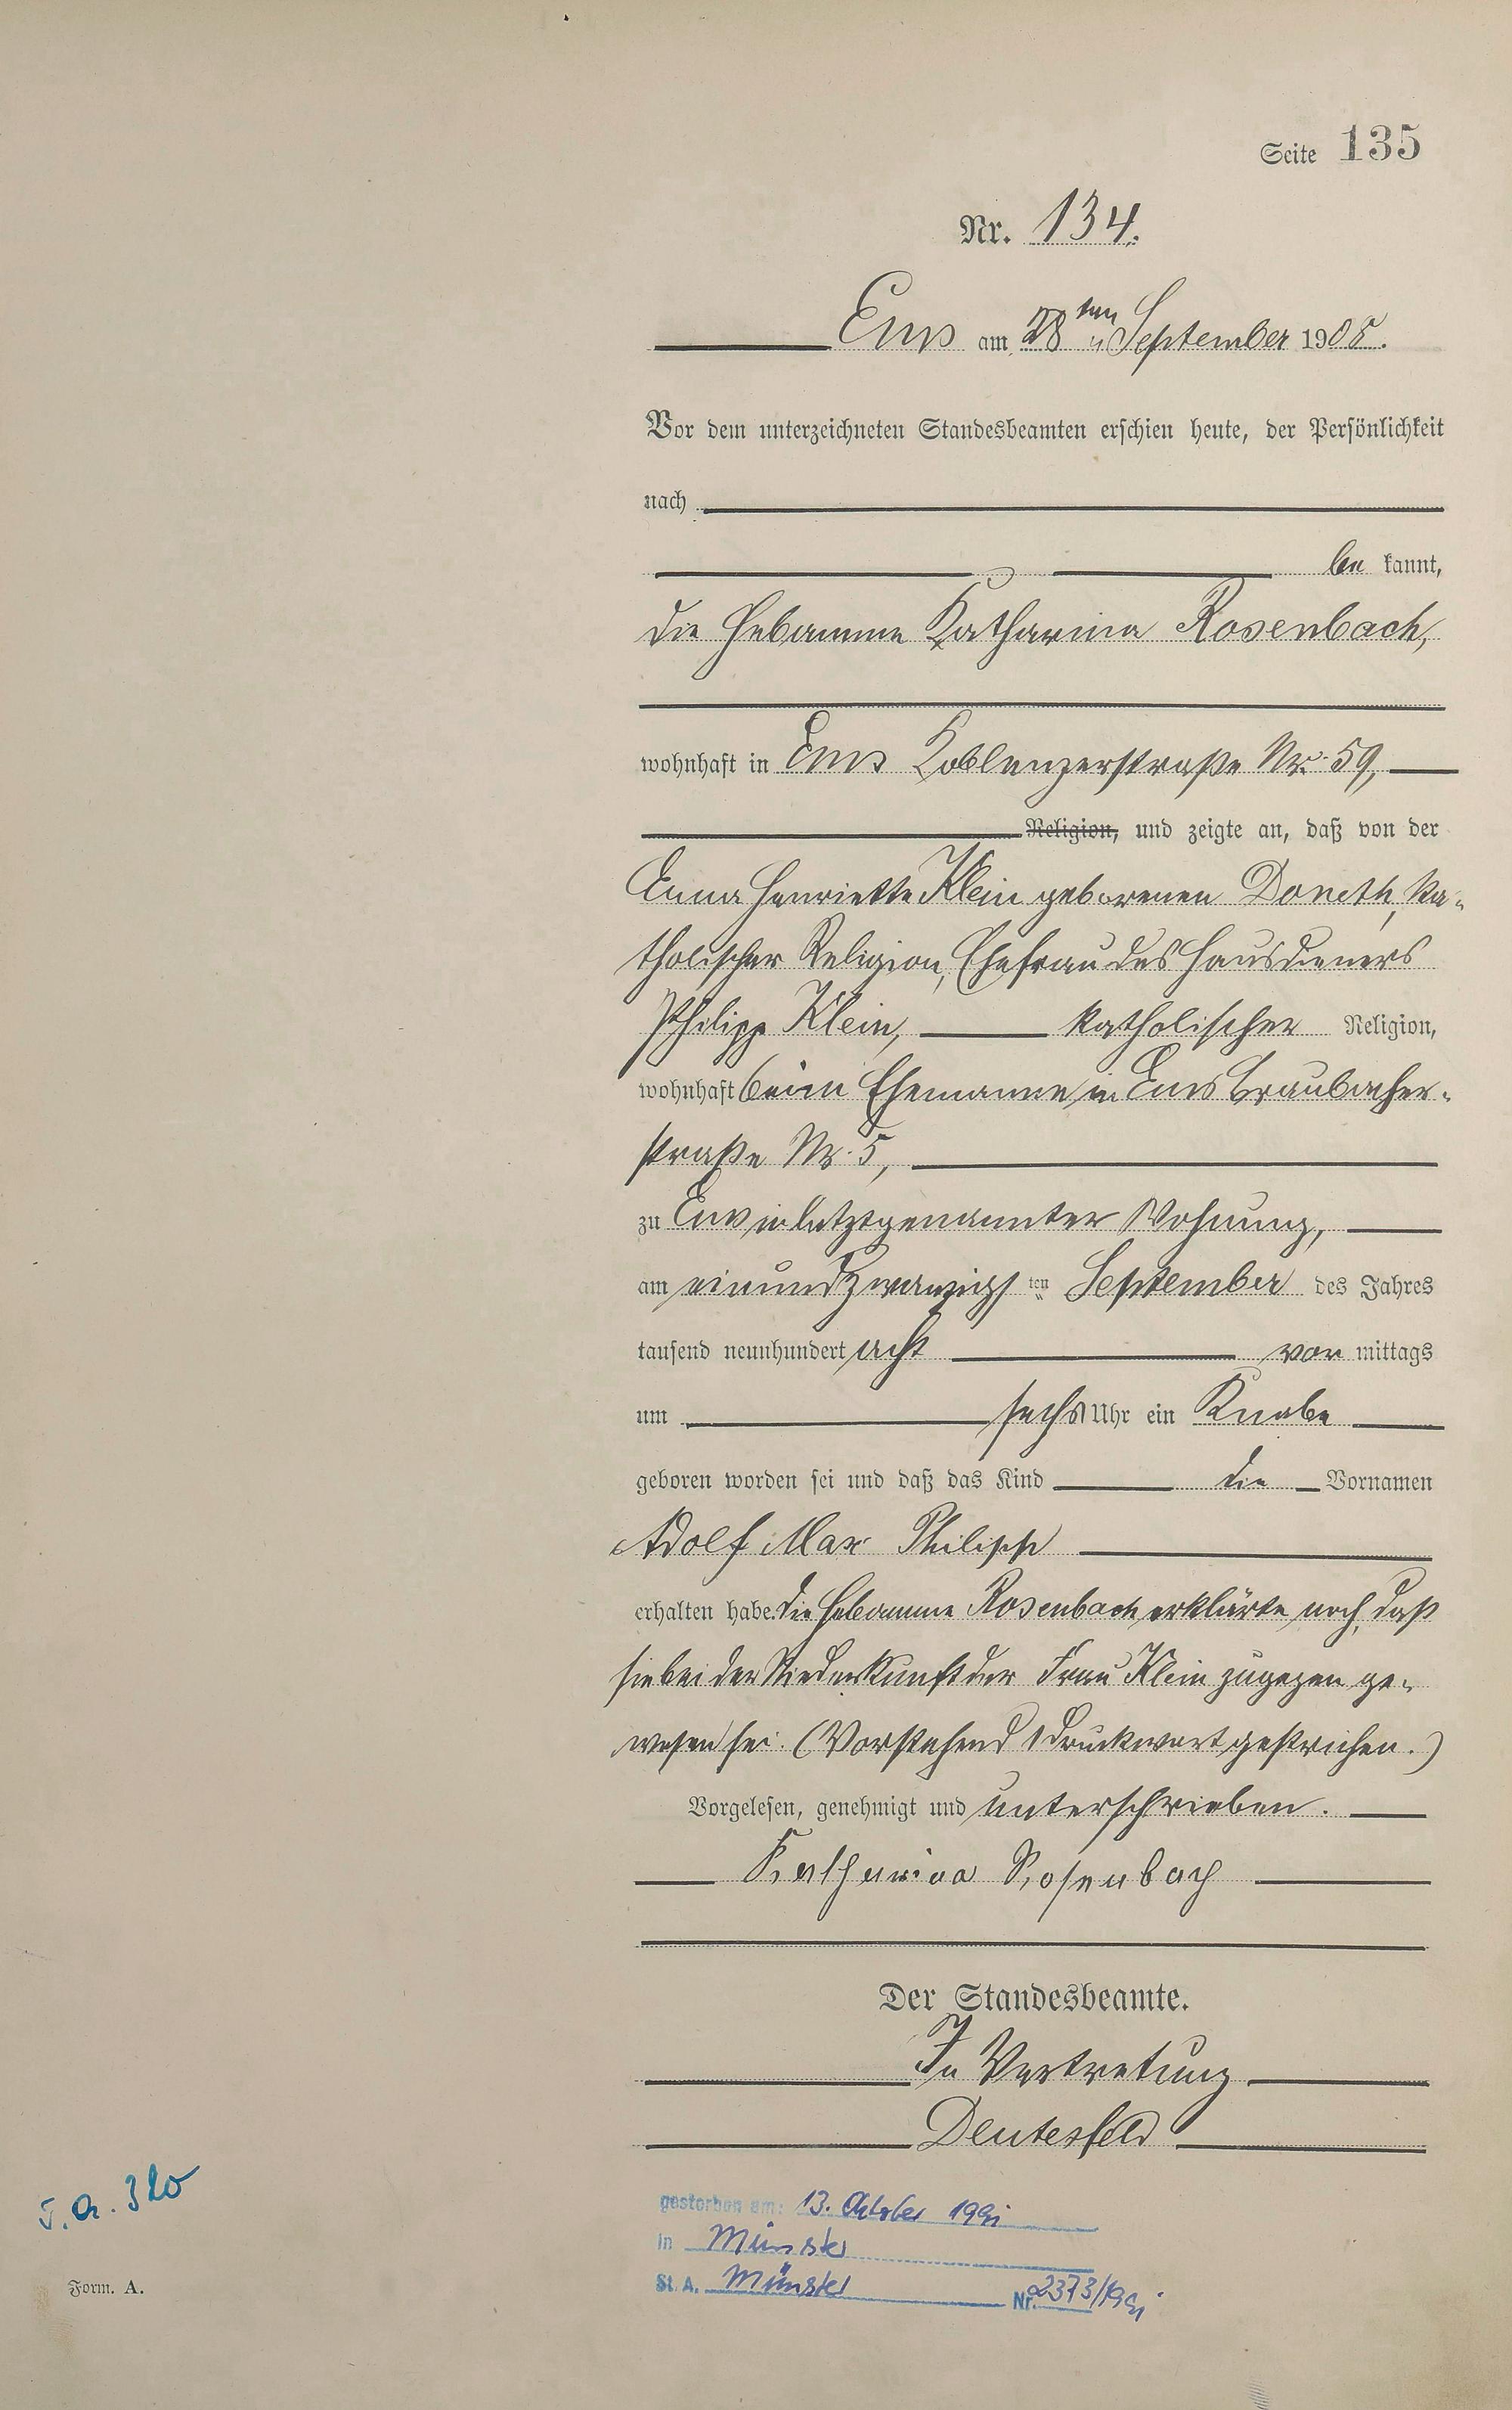 Seite 135
Nr. 134.
Ems am 28ten September 1908.
Vor dem unterzeichneten Standesbeamten erschien heute, der Persönlichkeit
nach
be kannt,
die Hebamme Katharina Rosenbach,
wohnhaft in Ems Koblenzerstraße Nr. 59,
Religion, und zeigte an, daß von der
Anna Henriette Klein geborenen Doneth, ka-
tholischer Religion, Ehefrau des Hausdieners
Philipp Klein, katholischer Religion,
wohnhaft beim Ehemanne in Ems Braubacher-
straße Nr. 5,
zu Ems in letztgenannter Wohnung,
am einundzwanzigsten September des Jahres
tausend neunhundert acht vor mittags
um sechs Uhr ein Knabe
geboren worden sei und daß das Kind die Vornamen
Adolf Max Philipp
erhalten habe. Die Hebamme Rosenbach erklärte noch, daß
sie bei der Niederkunft der Frau Klein zugegen ge-
wesen sei. (Vorstehend 1 Druckwort gestrichen.)
Vorgelesen, genehmigt und unterschrieben.
Katharina Rosenbach
Der Standesbeamte.
In Vertretung
Deutesfeld
gestorben am: 13. Oktober
in Münster
St. A. Münster Nr. 2373/
320
Form. A.